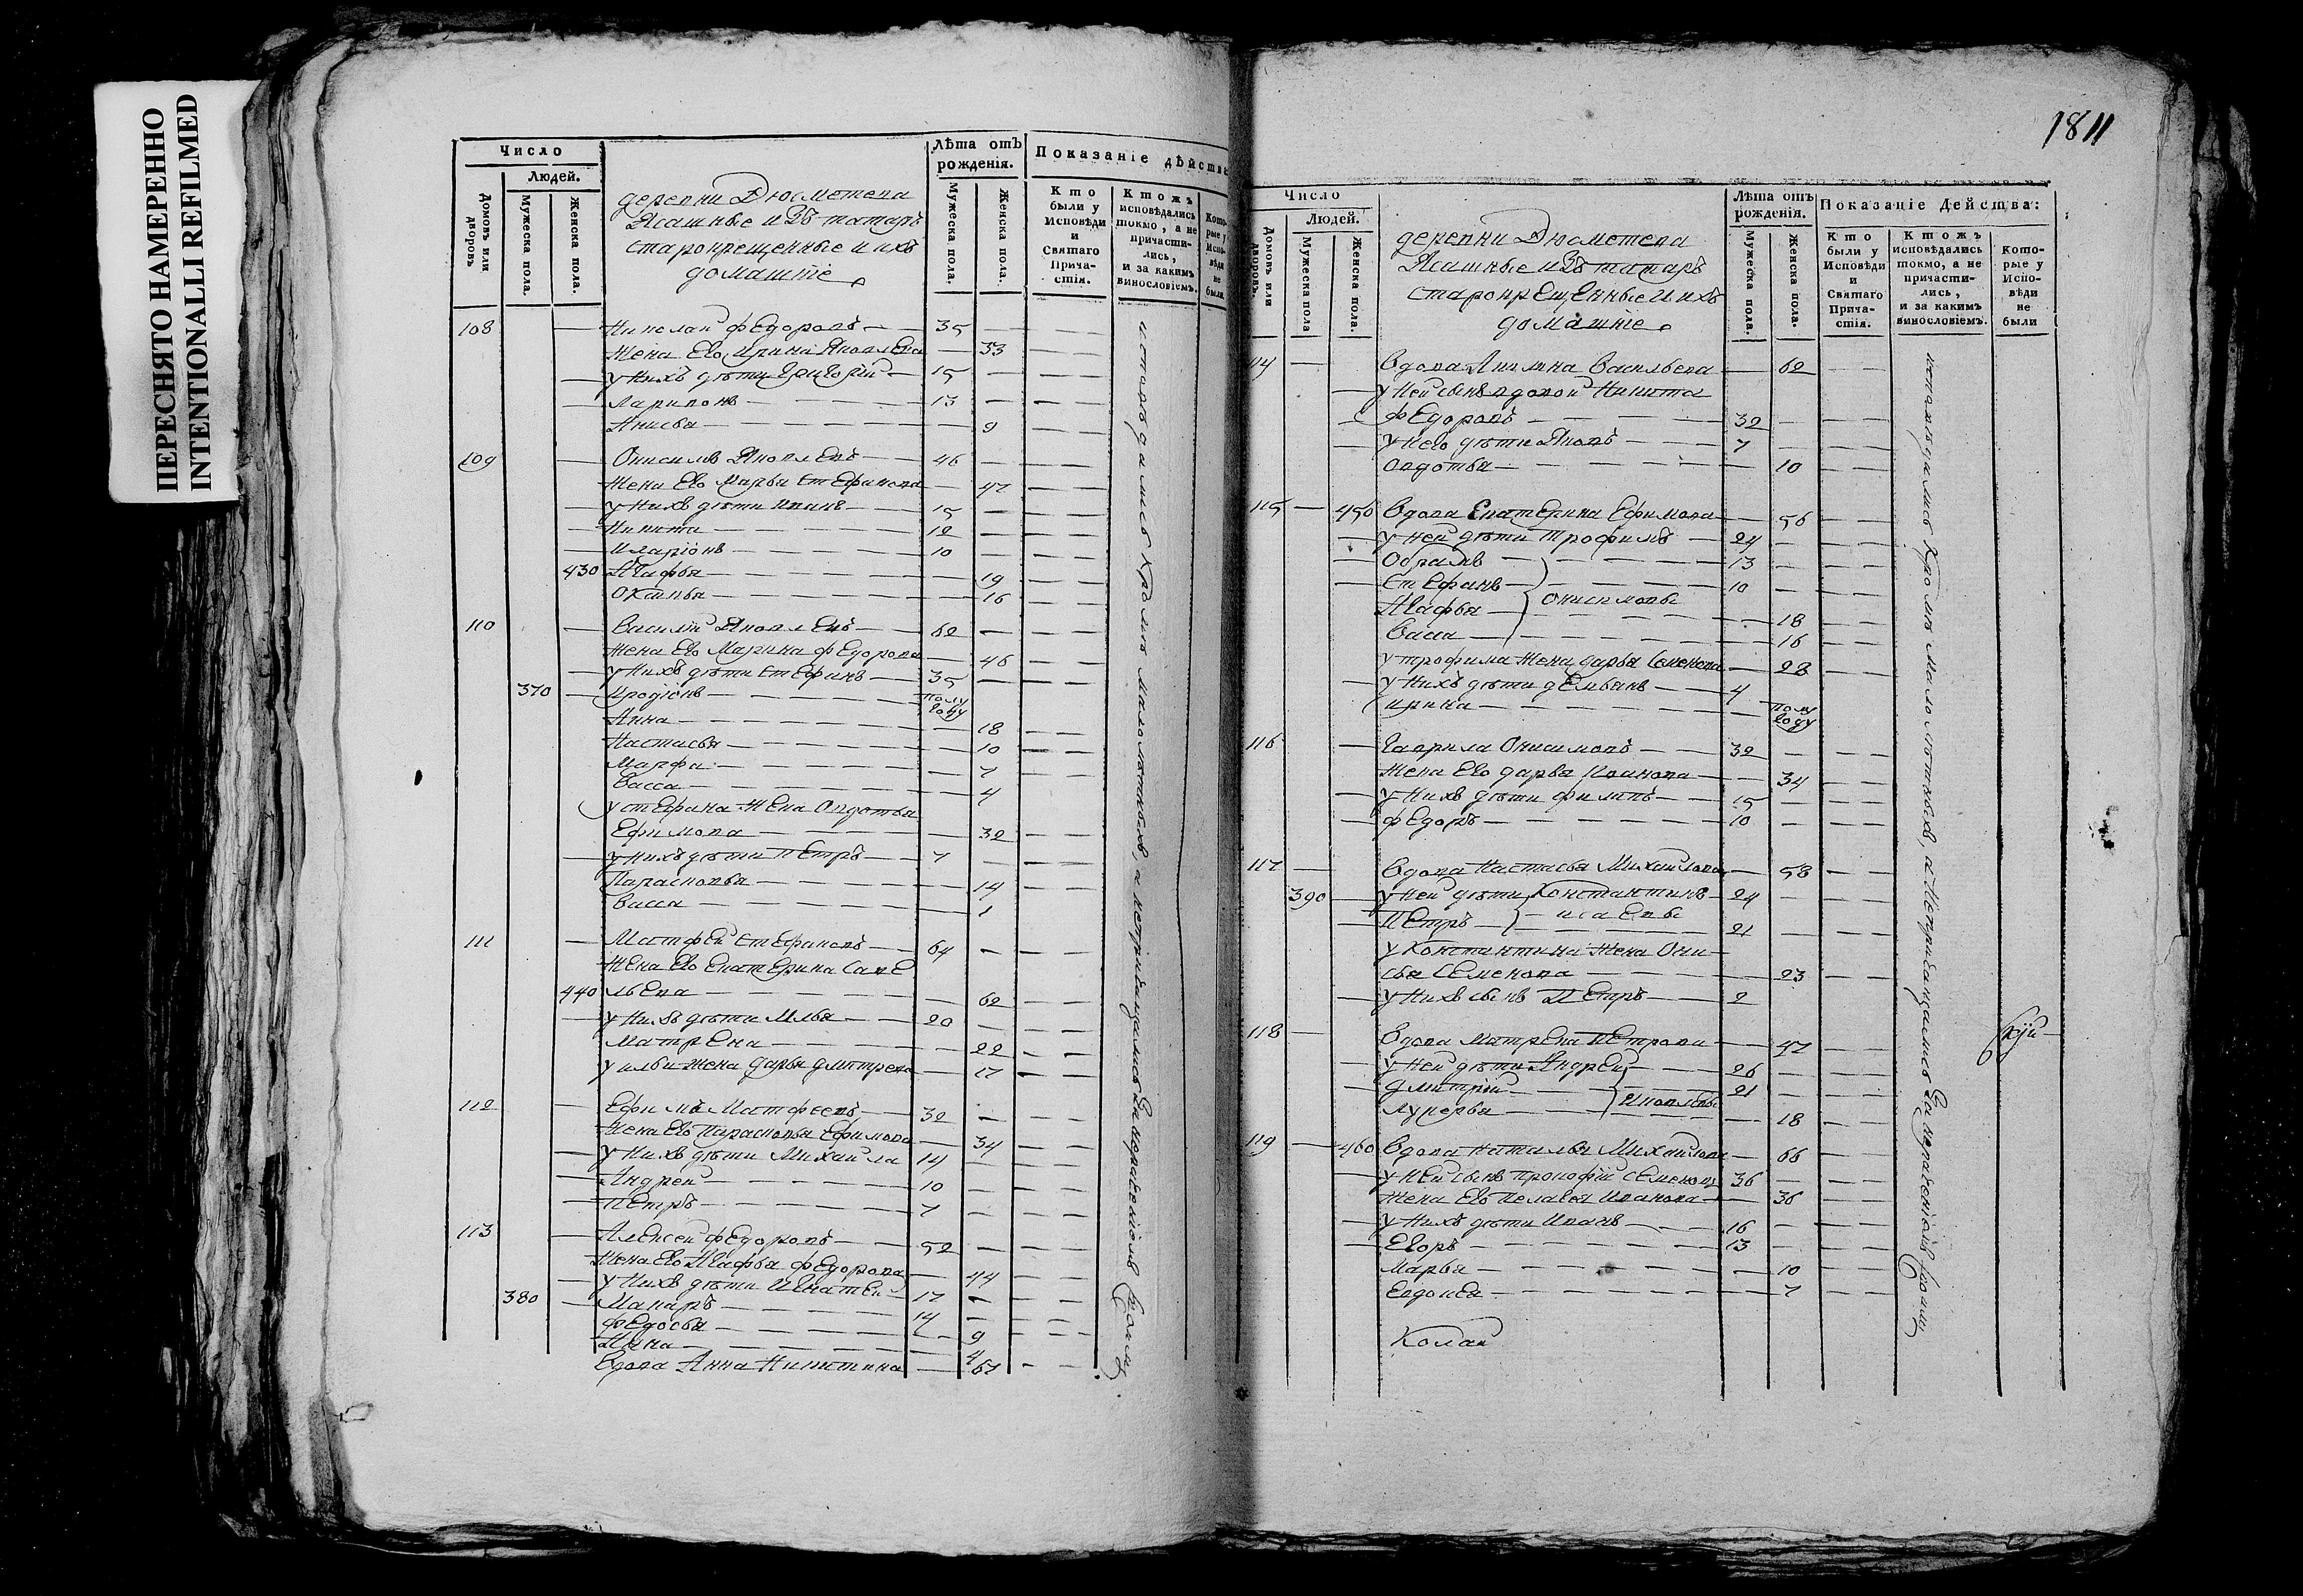 ПЕРЕСНЯТО НАМЕРЕННО
INTENTIONALLI REFILMED
Число
Людей.
Домовъ или дворовъ
Мужеска пола.
Женска пола.
деревни Дюсметева
Ясашные изъ татаръ
старокрещенные и ихъ
домашніе
Лѣта отъ рожденія.
Мужеска пола.
Женска пола.
Показаніе дѣйства
Кто были у Исповѣди и Святаго Прича-стія.
Ктожъ исповѣдались токмо, а не причасти-лись, и за какимъ винословіемъ.
Кото-рые у Испо-вѣди не были
108 Николай Федоровъ 35
Жена Ево Ирина Яковлева 33
у нихъ дѣти Григорій 15
Ларивонъ 13
Анисья 9
109 Онисимъ Яковлевъ 46
Жена Ево Марья Стефанова 47
у нихъ дѣти Иванъ 15
Никита 12
Иларіонъ 10
430 Агафья 19
Окинья 16
110 Василій Яковлевъ 62
Жена Ево Марина Федорова 46
у нихъ дѣти Стефанъ 35
370 Иродіонъ полу году
Анна 18
Настасья 10
Марфа 7
Васса 4
у стефана Жена Овдотья
Ефимова 32
у нихъ дѣти Петръ 7
Парасковья 14
Васса 1
111 Матфей Стефановъ 64
Жена Ево Екатерина Саве
440 льева 62
у нихъ дѣти Илья 20
Матрена 22
у ильи Жена Дарья дмитрева 17
112 Ефимъ Матфеевъ 32
Жена Ево Парасковья Ефимова 34
у нихъ дѣти Михайла 14
Андрей 10
Петръ 7
113 Алексей Федоровъ 52
Жена Ево Агафья Федорова 44
у нихъ дѣти Игнатей 17
380 Макаръ 14
Федосья 9
Анна 4
Вдова Анна Никитина 67
исповѣдались кромѣ малолѣтныхъ, а непричащались за нераченіемъ своимъ
1811
Число
Людей.
Домовъ или дворовъ.
Мужеска пола
Женска пола.
деревни Дюсметева
Ясашные изъ татаръ
старокрещенные и ихъ
домашніе
Лѣта отъ рожденія.
Мужеска пола.
Женска пола.
Показаніе Действа:
Кто были у Исповѣди и Святаго Прича-стія.
Ктожъ исповѣдались токмо, а не причасти-лись, и за какимъ винословіемъ.
Кото-рые у Испо-вѣди не были
114 Вдова Акилина Васильева 62
у ней сынъ вдовой Никита
Федоровъ 32
у него дѣти Яковъ 7
Овдотья 10
115 450 Вдова Екатерина Ефимова 56
у ней дѣти Трофимъ 24
Обрамъ 13
Стефанъ 10
Онисимовы
Агафья 18
Васса 16
у трофима Жена дарья Семенова 28
у нихъ дѣти демьянъ 4
ирина полу году
116 Гаврила Онисимовъ 32
Жена Ево дарья Иванова 34
у нихъ дѣти филипъ 15
федоръ 10
117 Вдова Настасья Михайлова 58
390 у ней дѣти Константинъ 24
Петръ исаевы 21
у Константина Жена Они
сья Семенова 23
у нихъ сынъ Петръ 2
118 Вдова Матрена Петрова 47
у ней дѣти Андрей 26
дмитрій 21
Яковлевы
Лукерья 18
119 460 Вдова Наталья Михайлова 66
у ней сынъ Прокофій Семеновъ 36
Жена Ево Пелагея Иванова 36
у нихъ дѣти Иванъ 16
Егоръ 13
Марья 10
Евдокея 7
исповѣдались кромѣ малолѣтныхъ, а непричащались за нераченіемъ своимъ